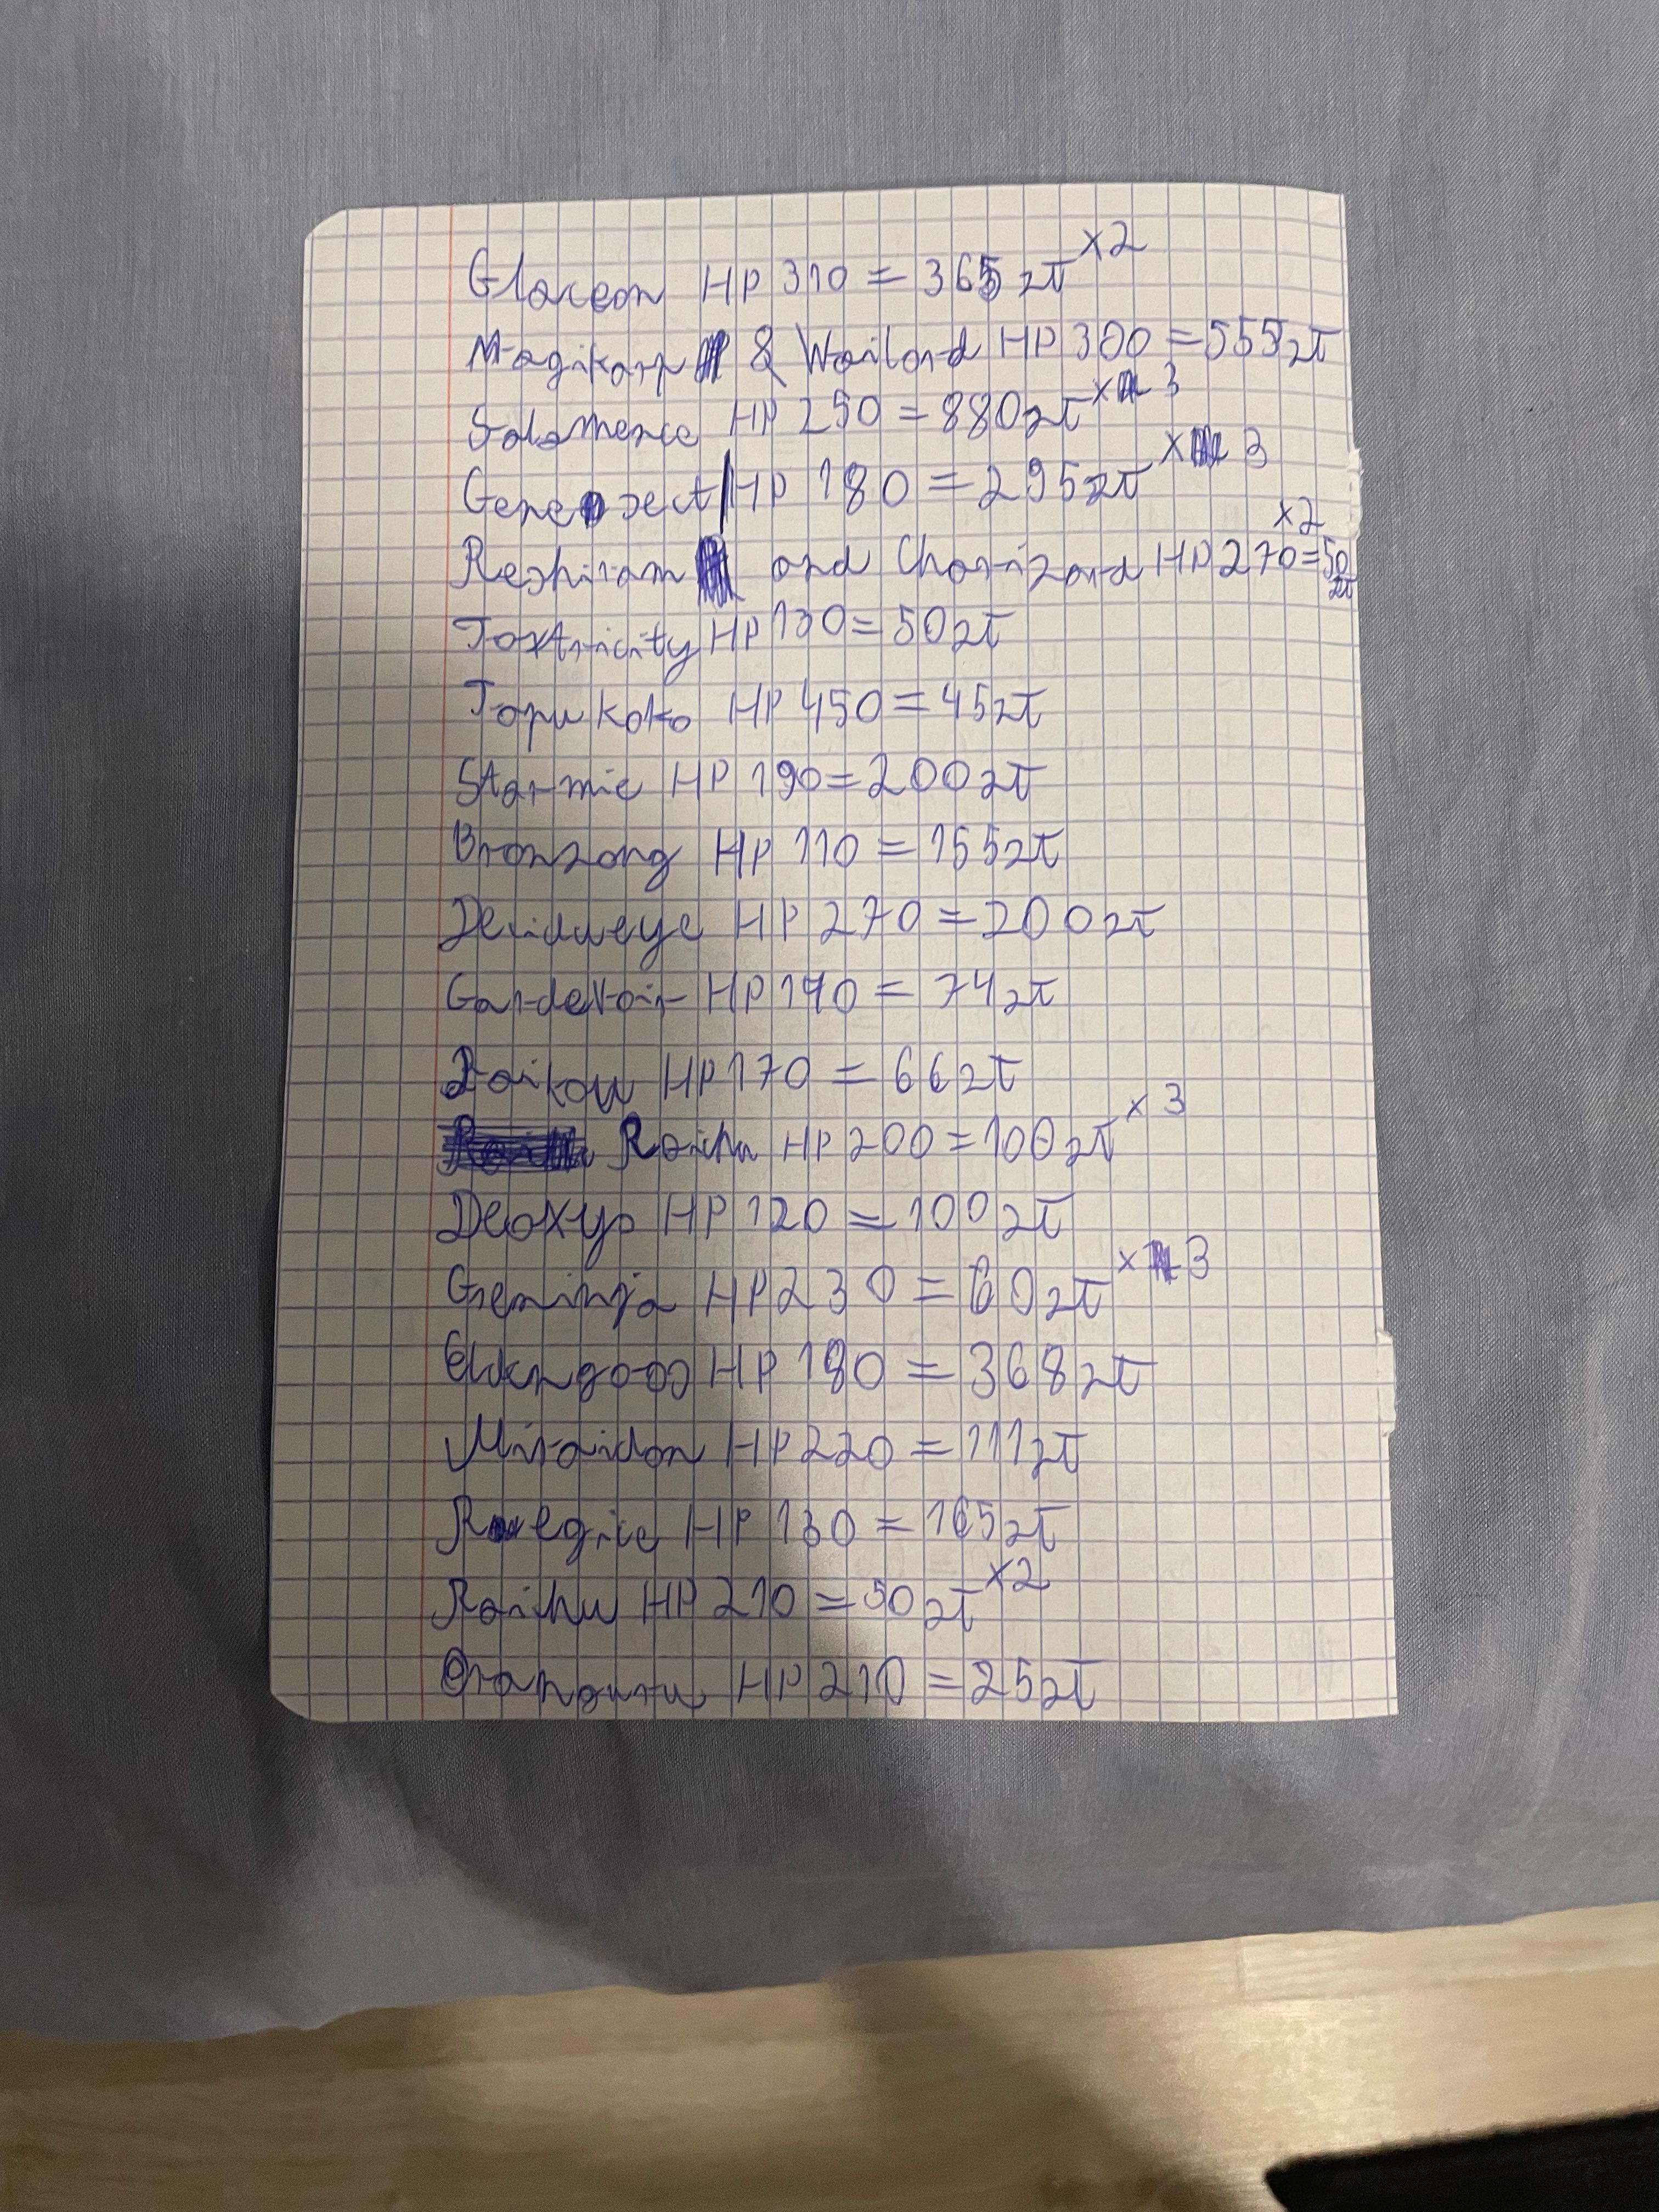 Glaceon HP 310 = 365 zł x2
Magikarp & Wailord HP 300 = 555 zł
Salamence HP 250 = 880 zł x 3
Genesect HP 180 = 295 zł x 3
Reshiram and Charizard HP 270 = 50 zł x2
Toxtricity HP 130 = 50 zł
Tapu koko HP 450 = 45 zł
Starmie HP 190 = 200 zł
Bronzong HP 110 = 155 zł
HP 270 = 200 zł
Gardevoir HP = 74 zł
Raikou HP 170 = 66 zł
Raichu HP 200 = 100 zł x 3
Deoxys HP 120 = 100 zł
Greninja HP 230 = 60 zł x 3
HP = 368 zł
Miraidon HP 220 = 111 zł
Regice HP 130 = 165 zł
Raichu HP 210 = 50 zł x2
Oranguru HP 210 = 25 zł